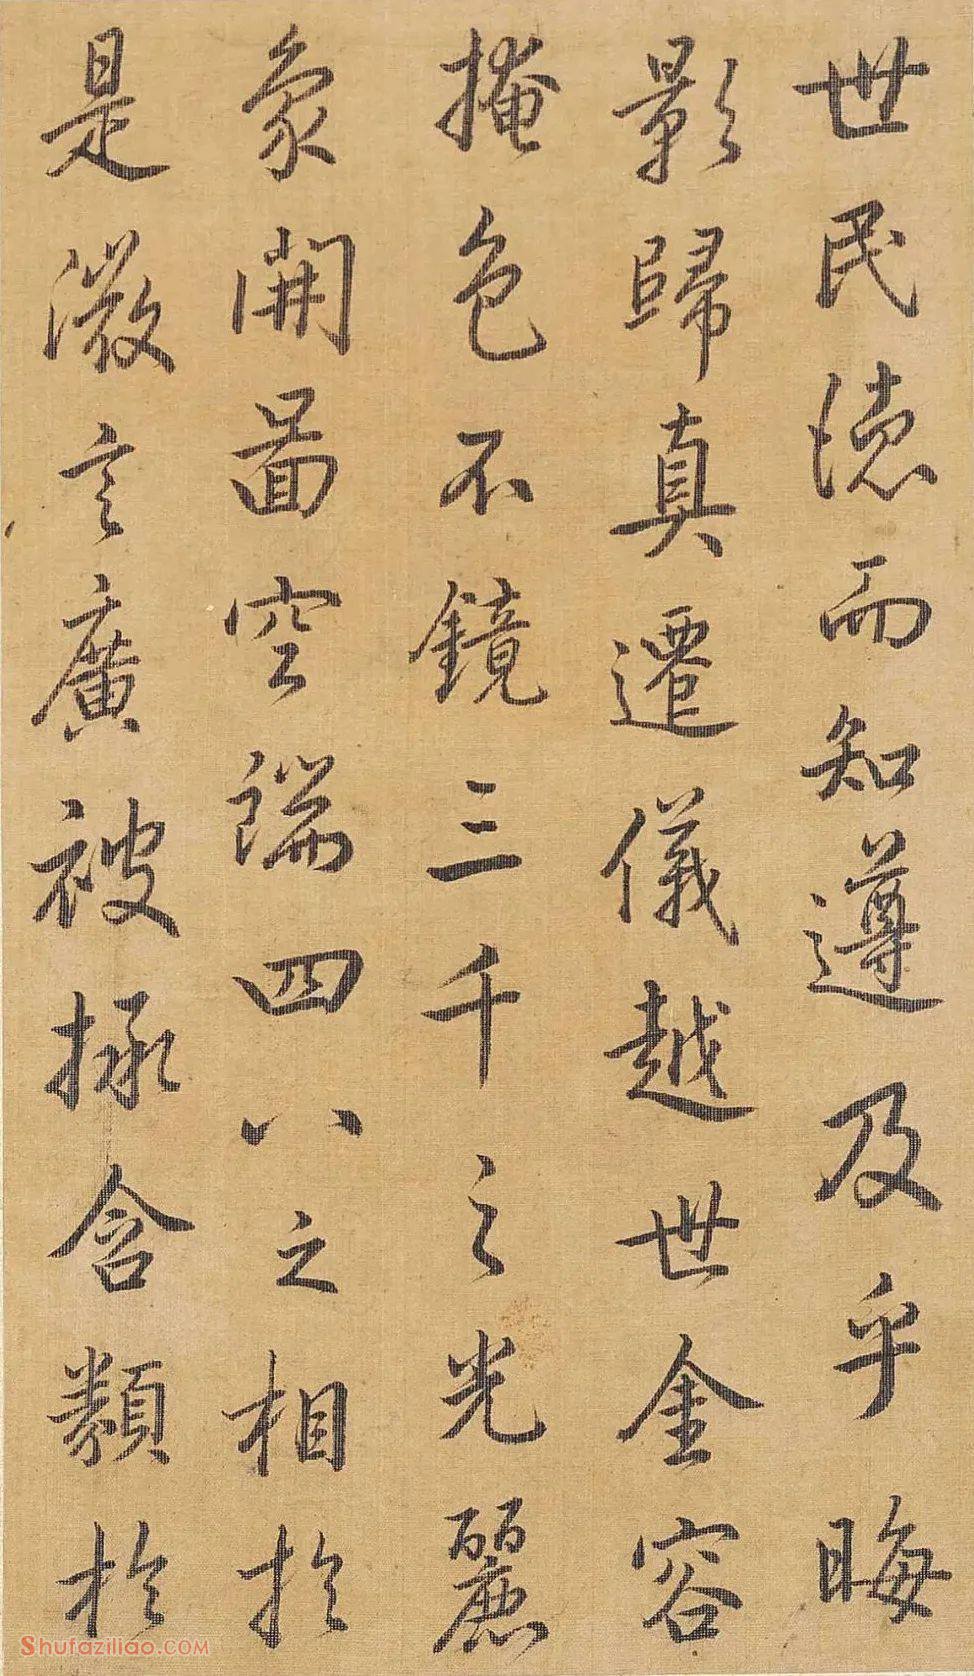 世民德而知遵及乎晦
影歸真遷儀越世金容
掩色不鏡三千之光麗
象開圖空端四八之相於
是微言廣被拯含類於
Shufaziliao.COM